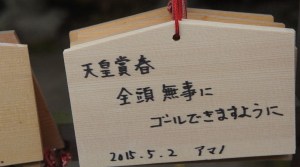 天皇賞春
全頭無事に
ゴールできますように
2015.5.2 アマノ